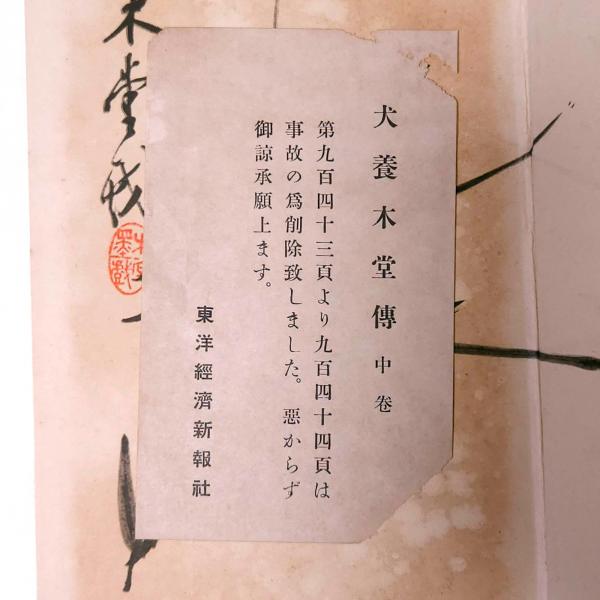 犬養木堂傳 中卷
第九百四十三頁より九百四十四頁は
事故の爲削除致しました。惡からず
御諒承願上ます。
東洋經濟新報社
木堂戲